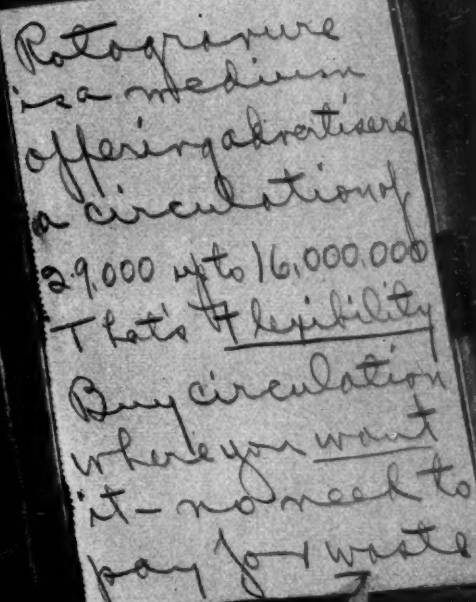 Rotogravure
is a medium
offering advertisers
a circulation of
29,000 up to 16,000,000
That's Flexibility
Buy circulation
where you want
it - no need to
pay for waste